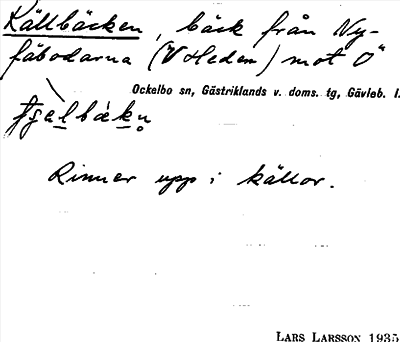 Källbäcken, bäck från Ny-
fäbodarna (V Heden) mot O"
Ockelbo sn, Gästriklands v. doms. tg, Gävleb. l.
Rinner upp i källor.
LARS LARSSON 1935